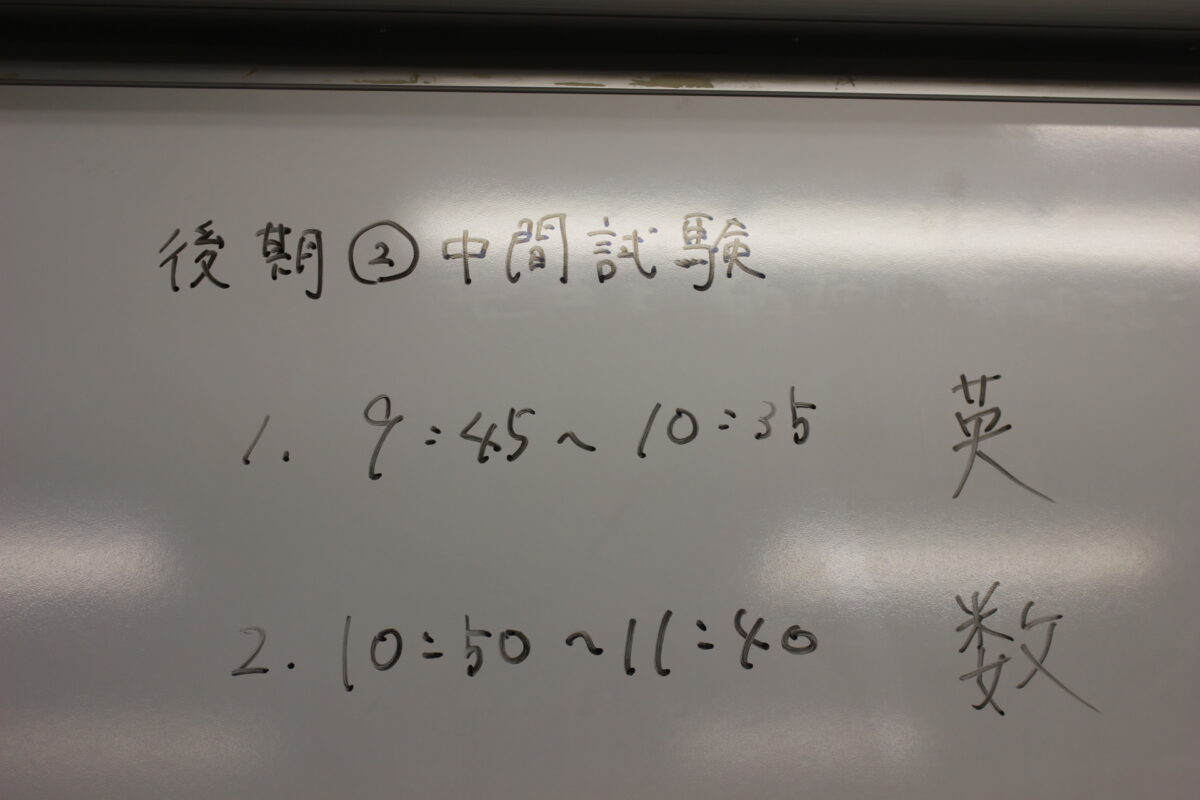 後期②中間試験
1. 9:45~10:35 英
2. 10:50~11:40 数